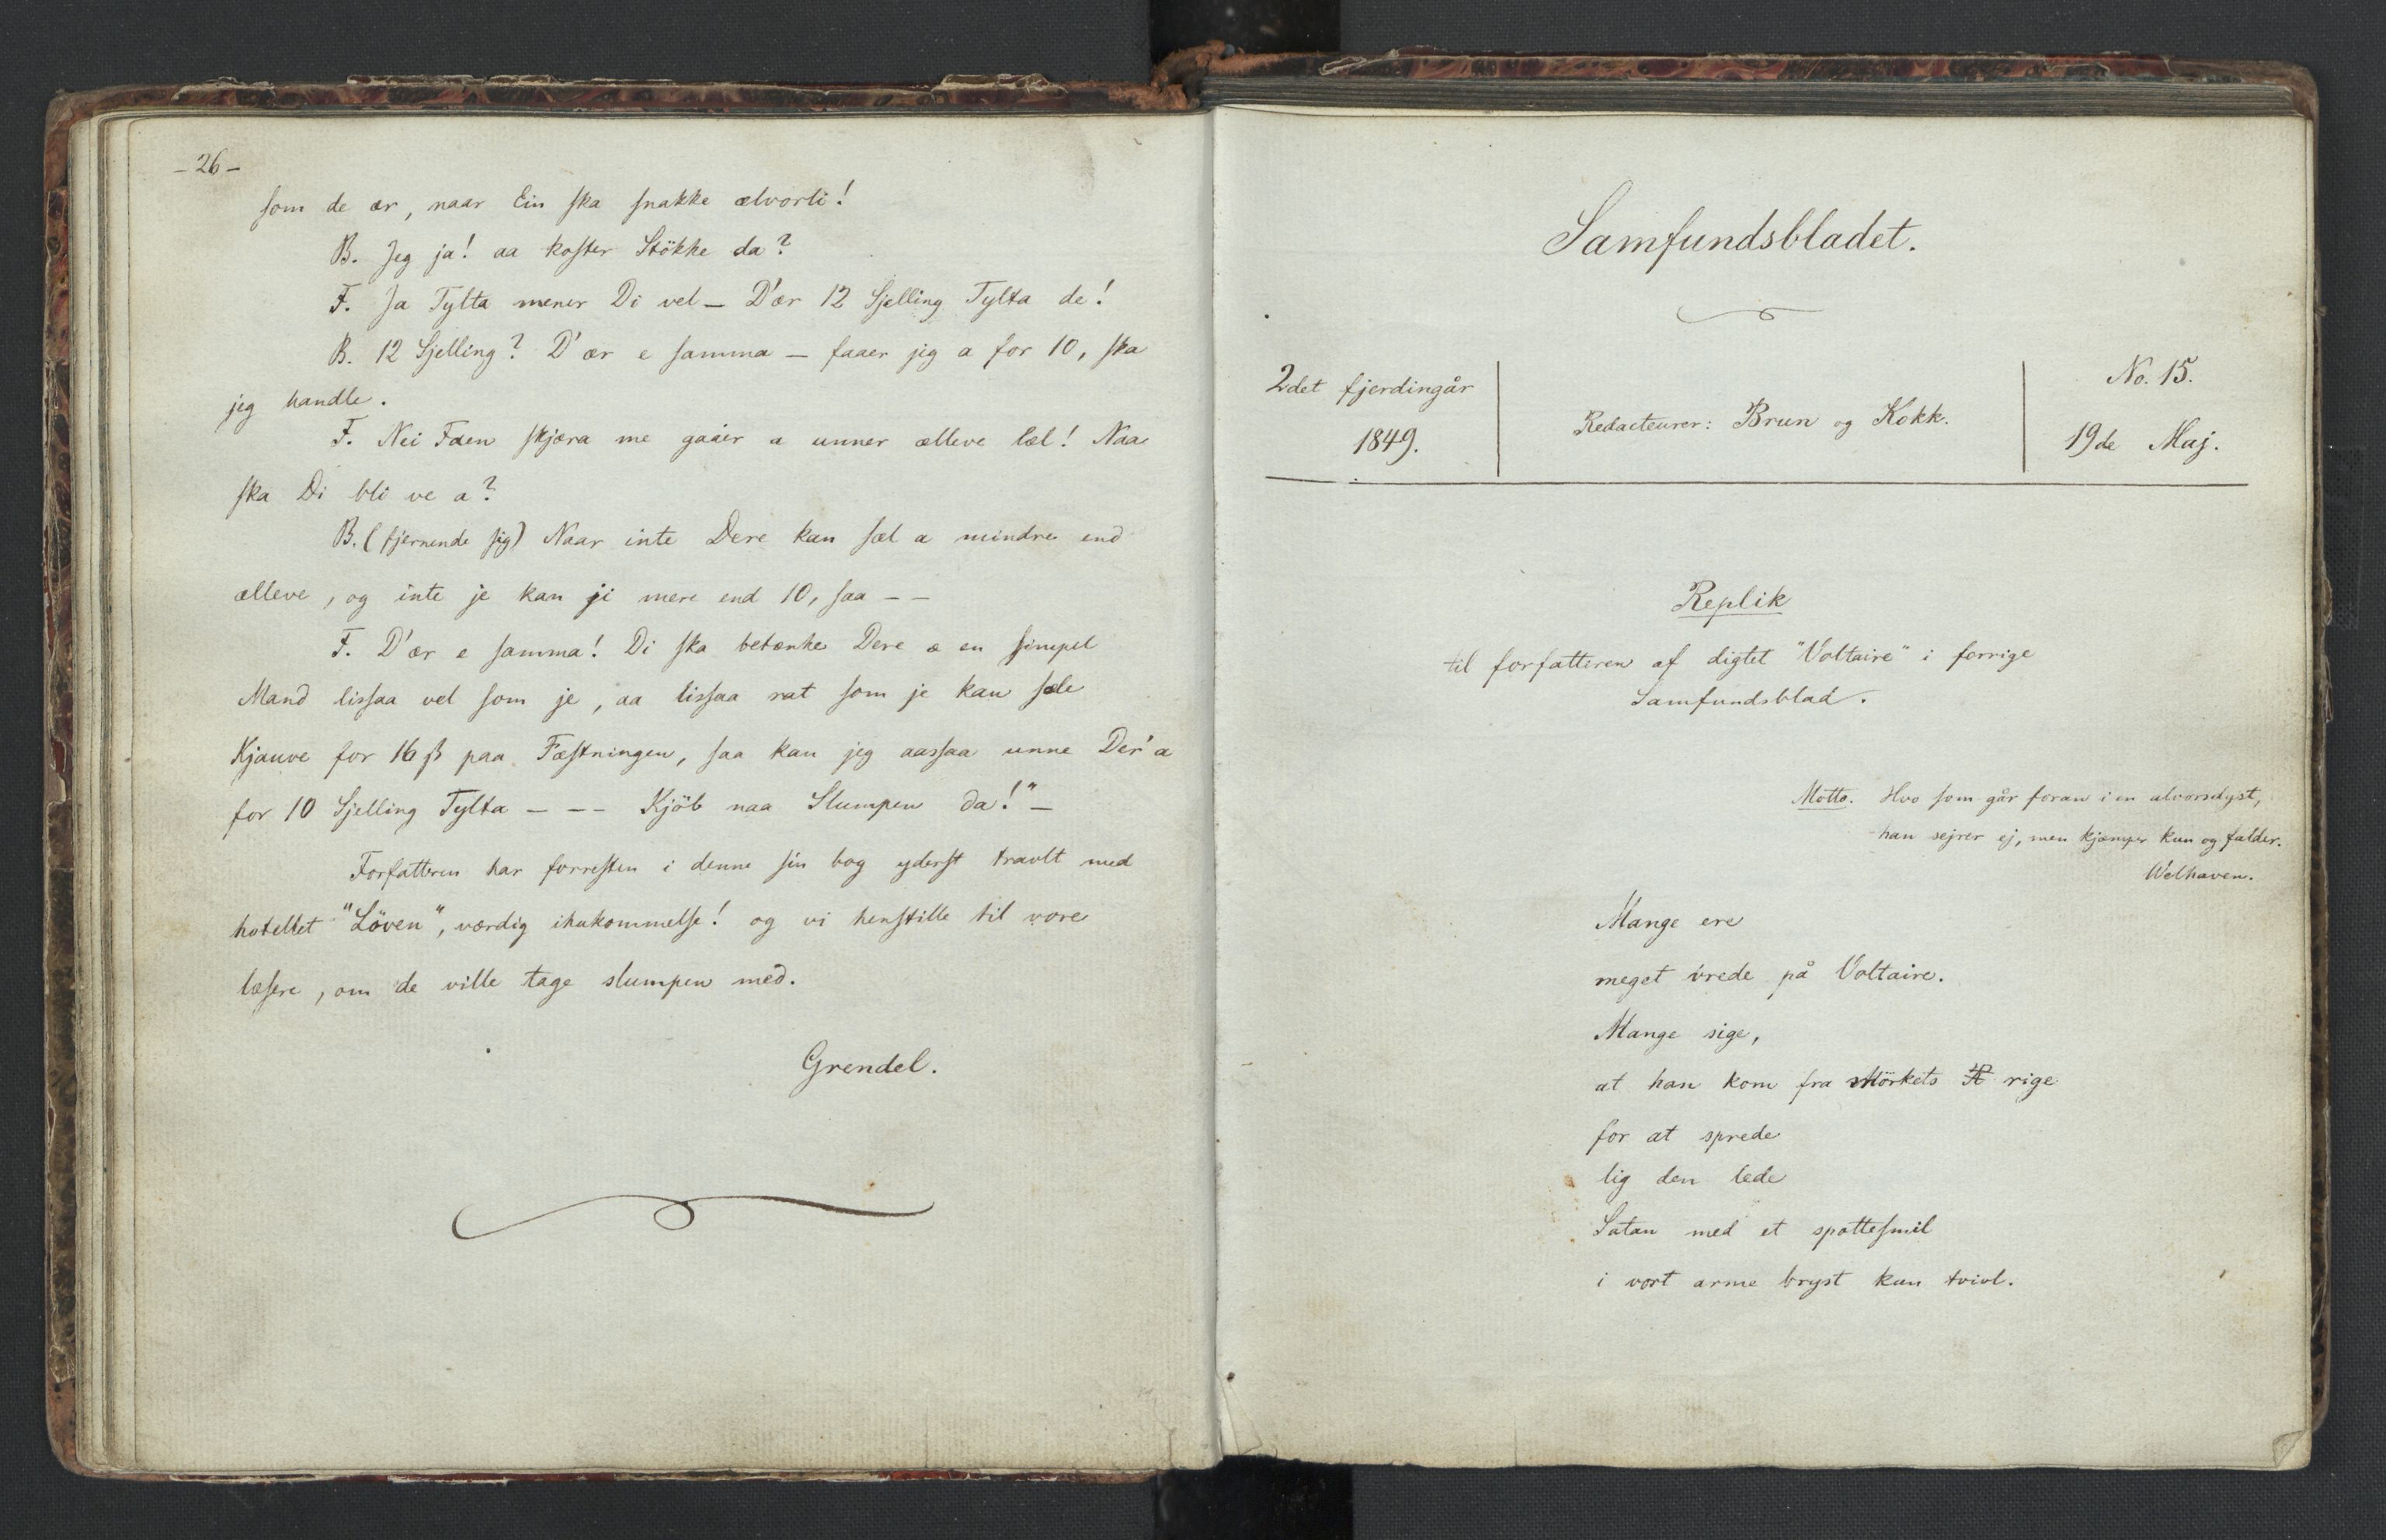 - 26 -
som de ær, naar Ein ska snakke ælvorli!
B. Jeg ja! aa koster Stökke da?
F. Ja Tylta mener Di vel - D'ær 12 Sjelling Tylta de!
B. 12 Sjelling? D'ær e samma - faaer jeg a for 10, ska
jeg handle.
F. Nei Faen skjæra me gaaer a unner ælleve læl! Naa
ska Di bli ve a?
B. (fjernende sig) Naar inte Dere kan sæl a mindre end
ælleve, og inte je kan ji mere end 10, saa - -
F. D'ær e samma! Di ska betænke Dere æ en simpel
Mand lissaa vel som je, aa lissaa rat som je kan sæle
Kjauve for 16 ß paa Fæstningen, saa kan jeg aassaa unne Der'a
for 10 Sjelling Tylta - - - Kjöb naa Slumpen da!" -
Forfatteren har forresten i denne sin bog yderst travlt med
hotellet "Löven", værdig ihukommelse! og vi henstille til vore
læsere, om de ville tage slumpen med.
Grendel.
Samfundsbladet.
2det fjerdingår
1849.
Redacteurer: Brun og Kokk.
No. 15.
19de Maj.
Replik
til forfatteren af digtet "Voltaire" i forrige
Samfundsblad.
Motto. Hvo som går foran i en alvorsdyst,
han sejrer ej, men kjæmper kun og falder.
Welhaven.
Mange ere
meget vrede på Voltaire.
Mange sige,
at han kom fra mörkets rige
for at sprede
lig den lede
Satan med et spottesmil
i vort arme bryst kun tvivl.